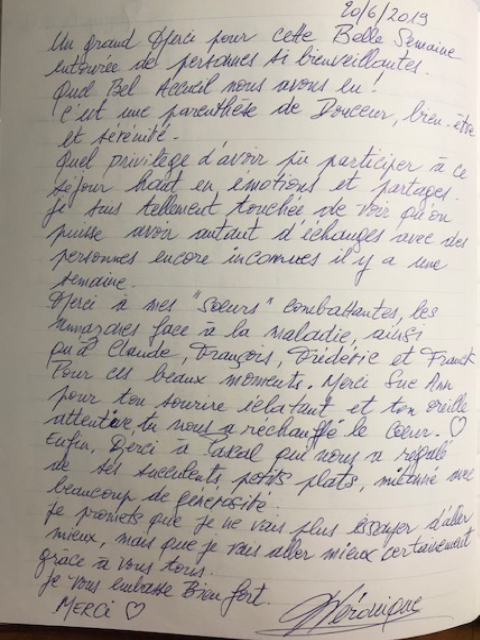 20/6/2019
Un grand Merci pour cette Belle Semaine
entourée de personnes si bienveillantes.
Quel Bel Accueil nous avons eu !
C'est une parenthèse de Douceur, bien-être
et sérénité.
Quel privilège d'avoir pu participer à ce
séjour haut en émotions et partages.
Je suis tellement touchée de voir qu'on
puisse avoir autant d'échanges avec des
personnes encore inconnues il y a une
semaine.
Merci à mes "soeurs" combattantes, les
face à la maladie, ainsi
qu'à Claude, François, Frédéric et Franck
Pour ces beaux moments. Merci Sue Ann
pour ton sourire éclatant et ton oreille
attentive, tu nous a réchauffé le Coeur. ♡
Enfin, Merci à Pascal qui nous a régalé
de ses succulents, petits plats, mitonné avec
beaucoup de générosité.
Je promets que je ne vais plus essayer d'aller
mieux, mais que je vais aller mieux certainement
grâce à vous tous.
Je vous embrasse Bien fort.
MERCI ♡ Véronique